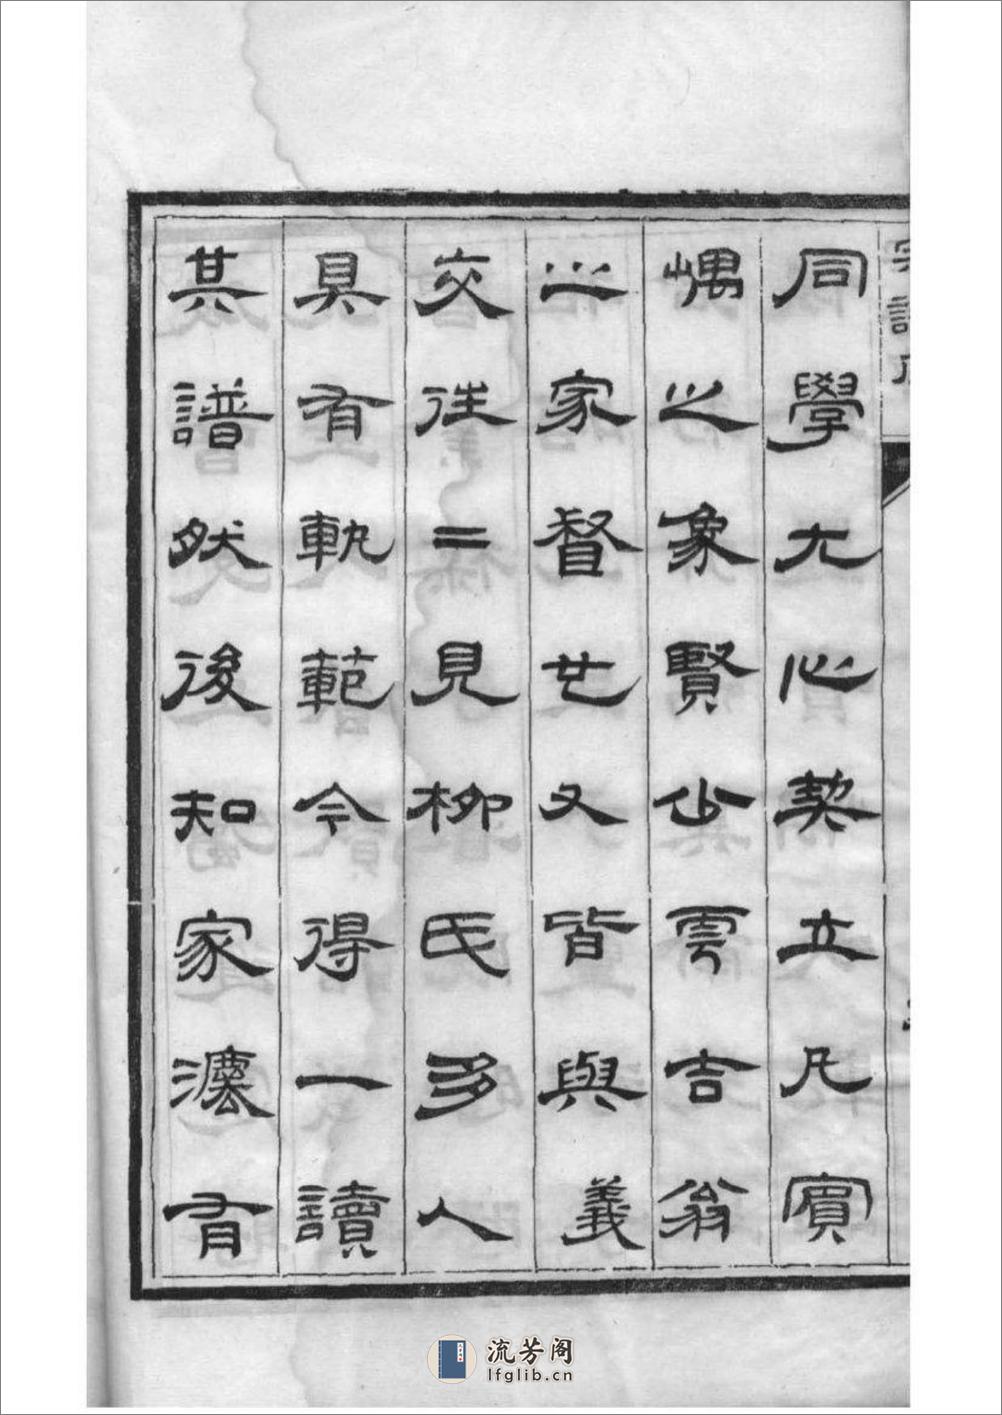 宗譜序
同學尤心契立凡賓
嵎之象賢少雲吉翁
之家督世又皆與義
交往〻見柳氏多人
具有軌範今得一讀
其譜然後知家灋有
流芳阁
lfglib.cn